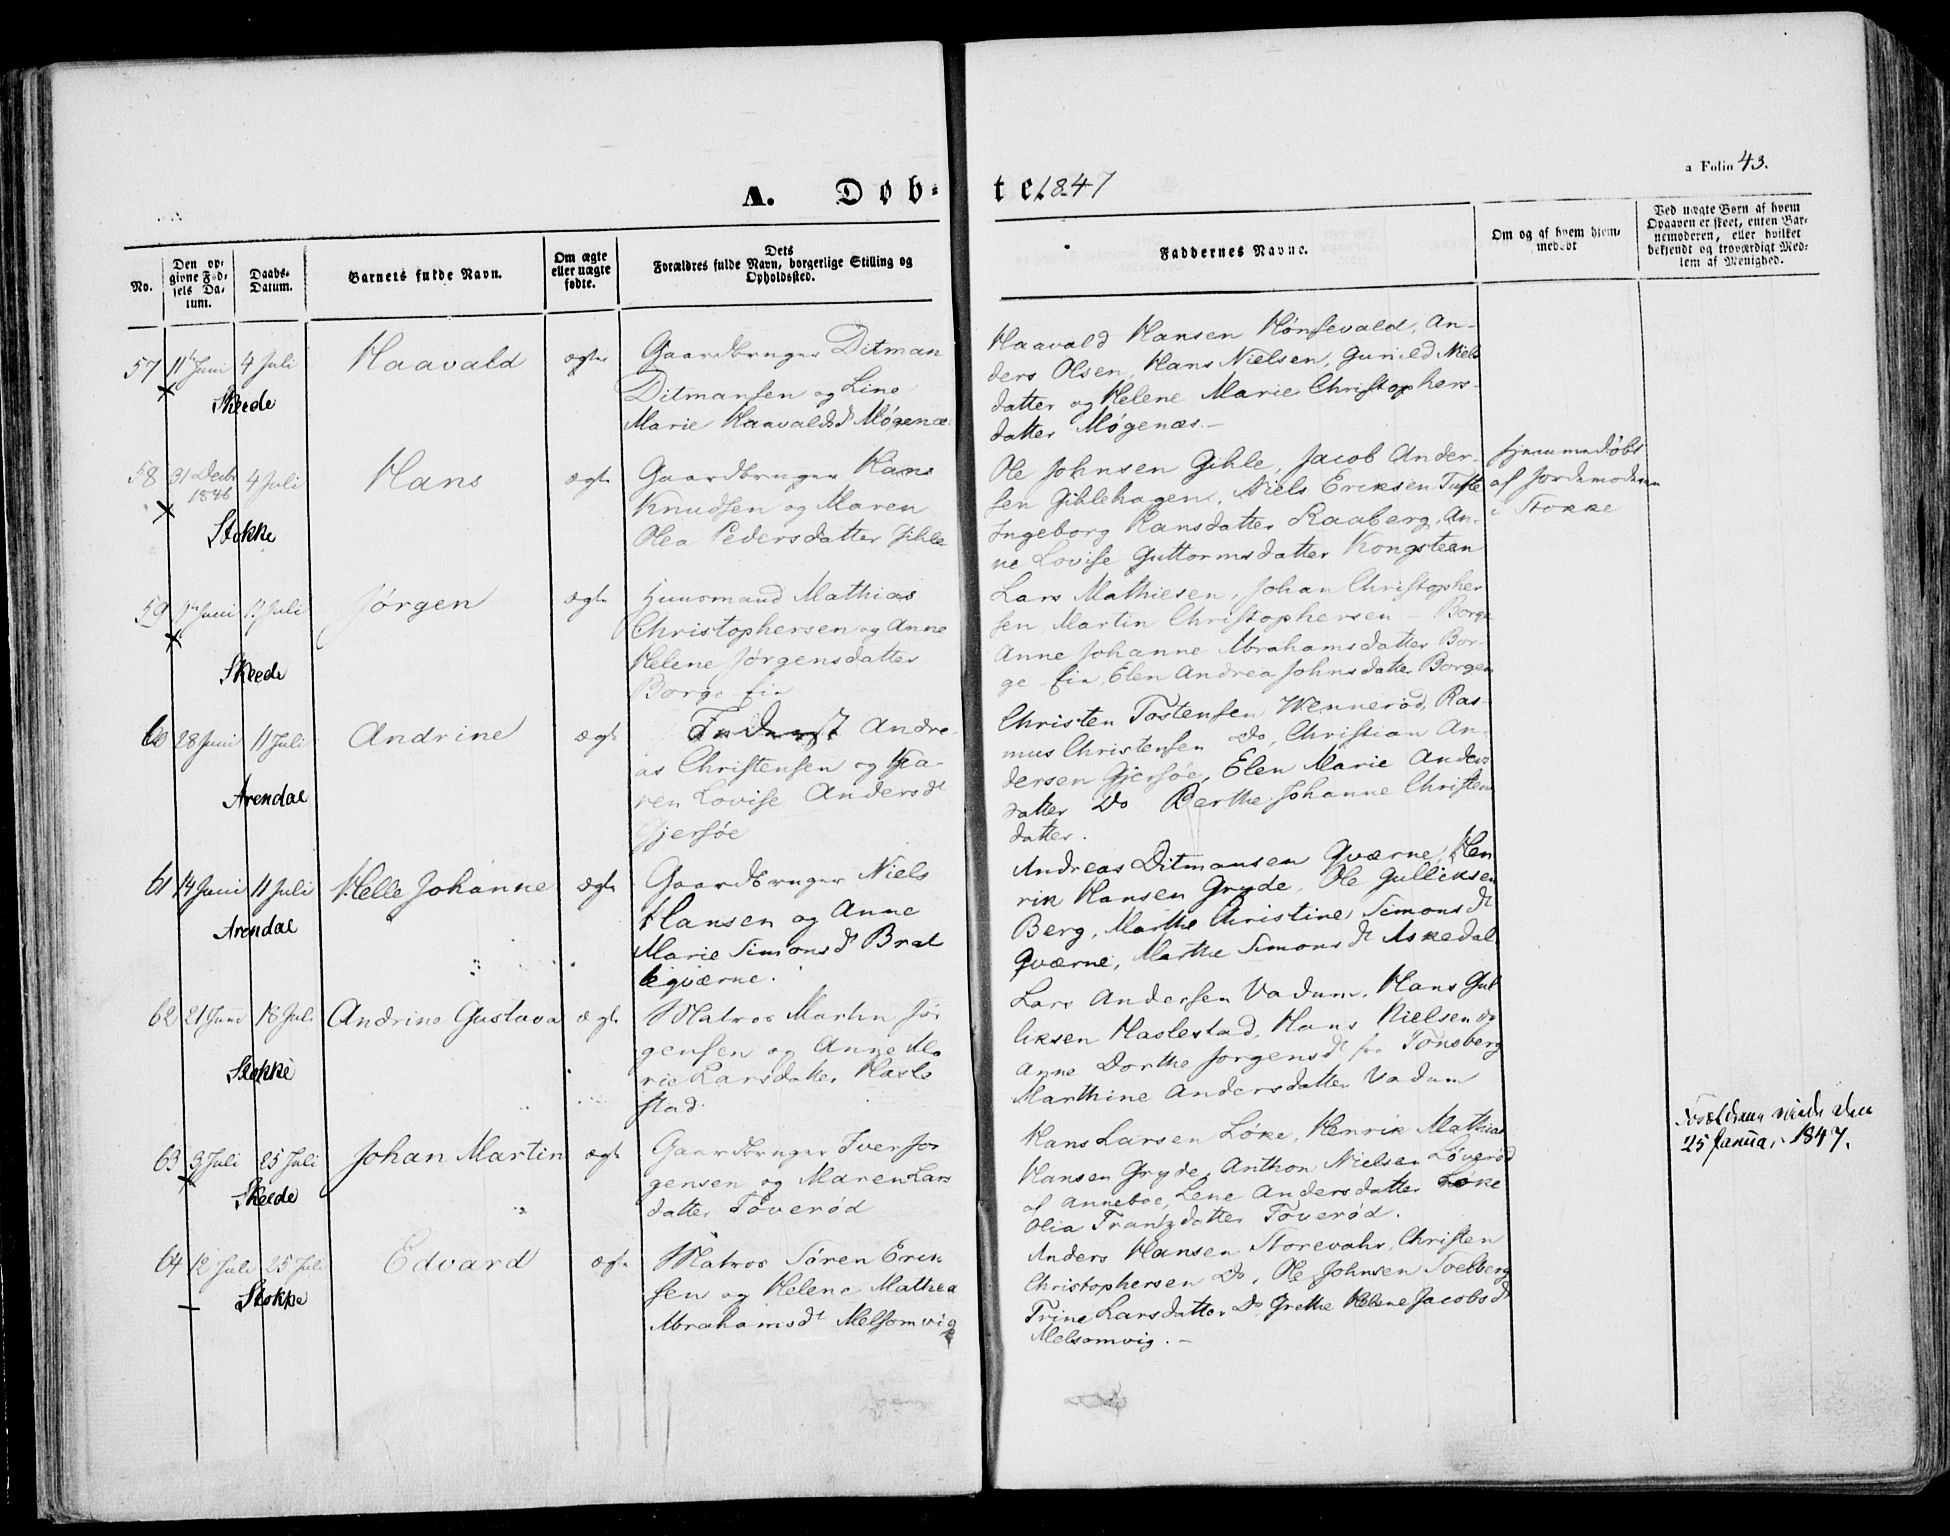 a Folio 43.
A. Døb-
te 1847
No.
Den op-
givne Fød-
sels Da-
tum.
Daabs-
Datum.
Barnets fulde Navn.
Om ægte
eller uægte
fødte.
Dets
Forældres fulde Navn, borgerlige Stilling og
Opholdssted.
Faddernes Navne.
Om og af hvem hjem-
medøbt
Ved uægte Børn af hvem
Opgaven er skeet, enten Bar-
nemoderen, eller hvilket
bekjendt og troværdigt Med-
lem af Menighed.
57 11te Juni 4 Juli Haavald ægte
Skeede
Gaardbruger Ditman
Ditmansen og Line
Marie Haavaldsd Møgenæs
Haavald Hansen Hønsevald, An-
ders Olsen, Hans Nielsen, Gunild Niels
datter og Helene Marie Christophers
datter Møgenæs.-
58 31 Decbr 4 Juli Hans ægte
1846
Stokke
Gaardbruger Hans
Knudsen og Maren
Olea Pedersdatter Gihle
Ole Johnsen Gihle, Jacob Ander-
sen Gihlehagen, Niels Eriksen Tufte
Ingeborg Hansdatter Raaberg, An-
ne Lovise Guttormsdatter Kongsteen
hjemmedøbt
af Jordemoderen
i Stokke
59 Juni 11 Juli Jørgen ægte
Skeede
Huusmand Mathias
Christophersen og Anne
Helene Jørgensdatter
Borge-Eie
Lars Mathiesen, Johan Christopher
sen, Martin Christophersen - Borge
Anne Johanne Abrahamsdatter Bor-
ge-Eie, Elen Andrea Johnsdatter Borgen
60 28 Juni 11 Juli Andrine ægte
Arendal
Inderst Andre-
as Christensen og Ka-
ren Lovise Andersdt
Gjersøe
Christen Tostensen Wennerød, Ras-
mus Christensen Do, Christian An-
dersen Gjersøe, Elen Marie Anders
datter Do Berthe Johanne Christens
datter.
61 14 Juni 11 Juli Helle Johanne ægte
Arendal
Gaardbruger Niels
Hansen og Anne
Marie Simonsdt Bræk
keqværne.
Andreas Ditmansen Qværne, Hen
rik Hansen Gryde, Ole Gulliksen
Berg, Marthe Christine Simonsdt
Qværne, Marthe Simonsdt Askedal
62 21 Juni 18 Juli Andrine Gustava ægte
Stokke
Matros Martin Jør
gensen og Anne Ma
rie Larsdatter Hasle
stad.
Lars Andersen Vadum, Hans Gul
liksen Haslestad, Hans Nielsen Do
Anne Dorthe Jørgensdt fra Tønsberg
Marthine Andersdatter Vadum
63 3 Juli 25 Juli Johan Martin ægte
Skeede
Gaardbruger Iver Jør
gensen og Maren Lars
datter Toverød
Hans Larsen Løke, Henrik Mathias
Hansen Gryde, Anthon Nielsen Løverød
af Anneboe, Lene Andersdatter Løke
Olia Frantzdatter Toverød.
Forældrene viede den
25 Januar 1847.
64 12 Juli 25 Juli Edvard ægte
Stokke
Matros Søren Erik
sen og Helene Mathea
Abrahamsdt Melsomvig
Anders Hansen Storevahr, Christen
Christophersen Do, Ole Johnsen Soelberg
Trine Larsdatter Do Grethe Helene Jacobsdt
Melsomvig.-